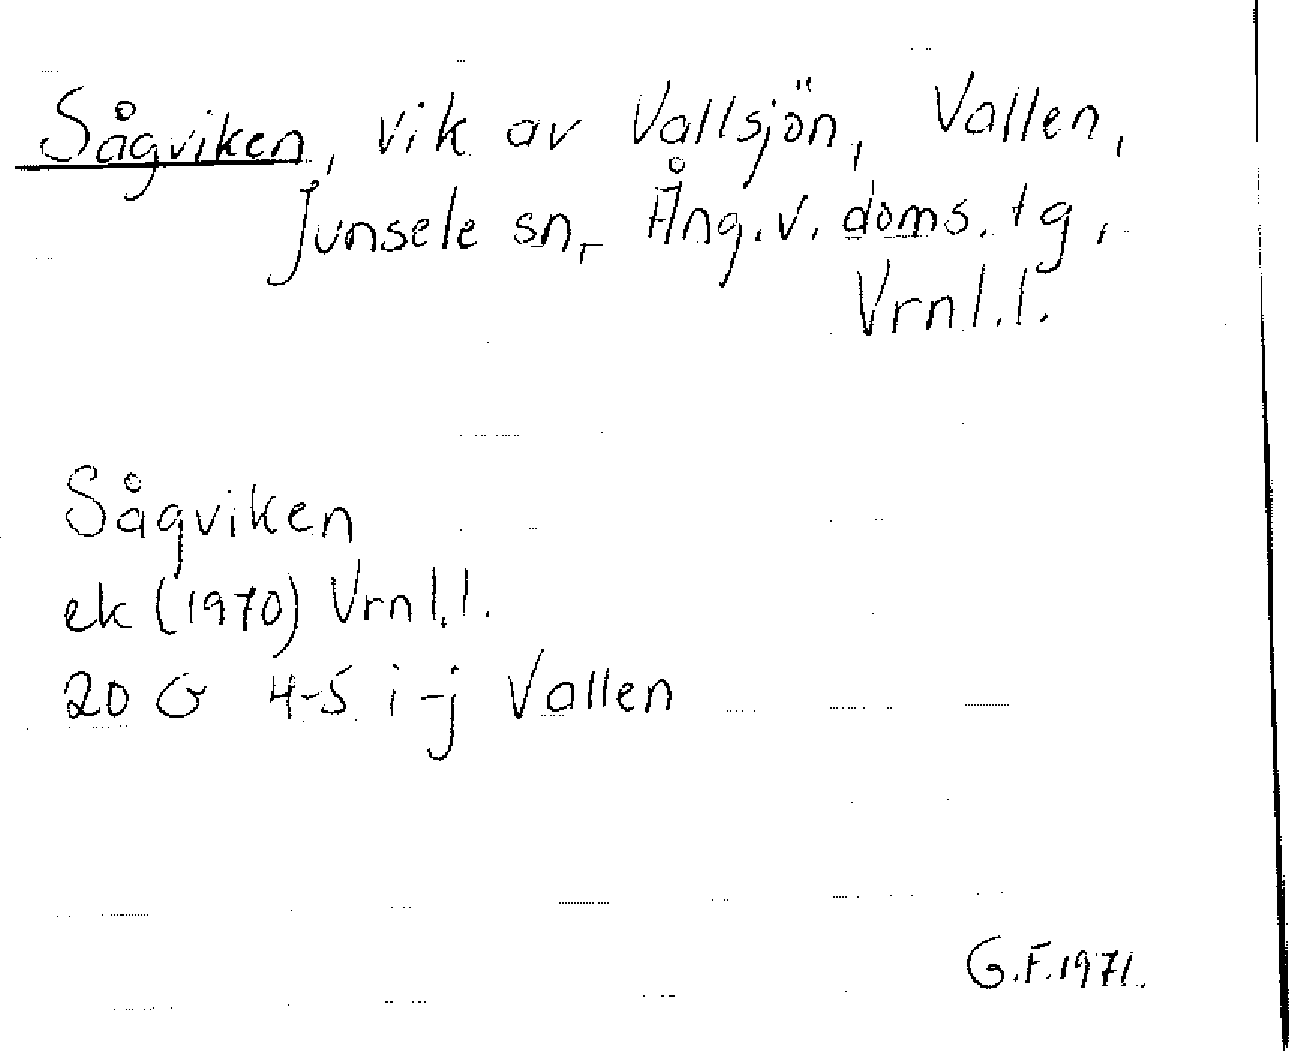 Sågviken, vik av Vallsjön, Vallen,
Junsele sn, Ång.v. doms. tg,
Vrnl.l.
Sågviken
ek (1970) Vrnl.l.
20 G 4-5 i-j Vallen
G.F.1971.